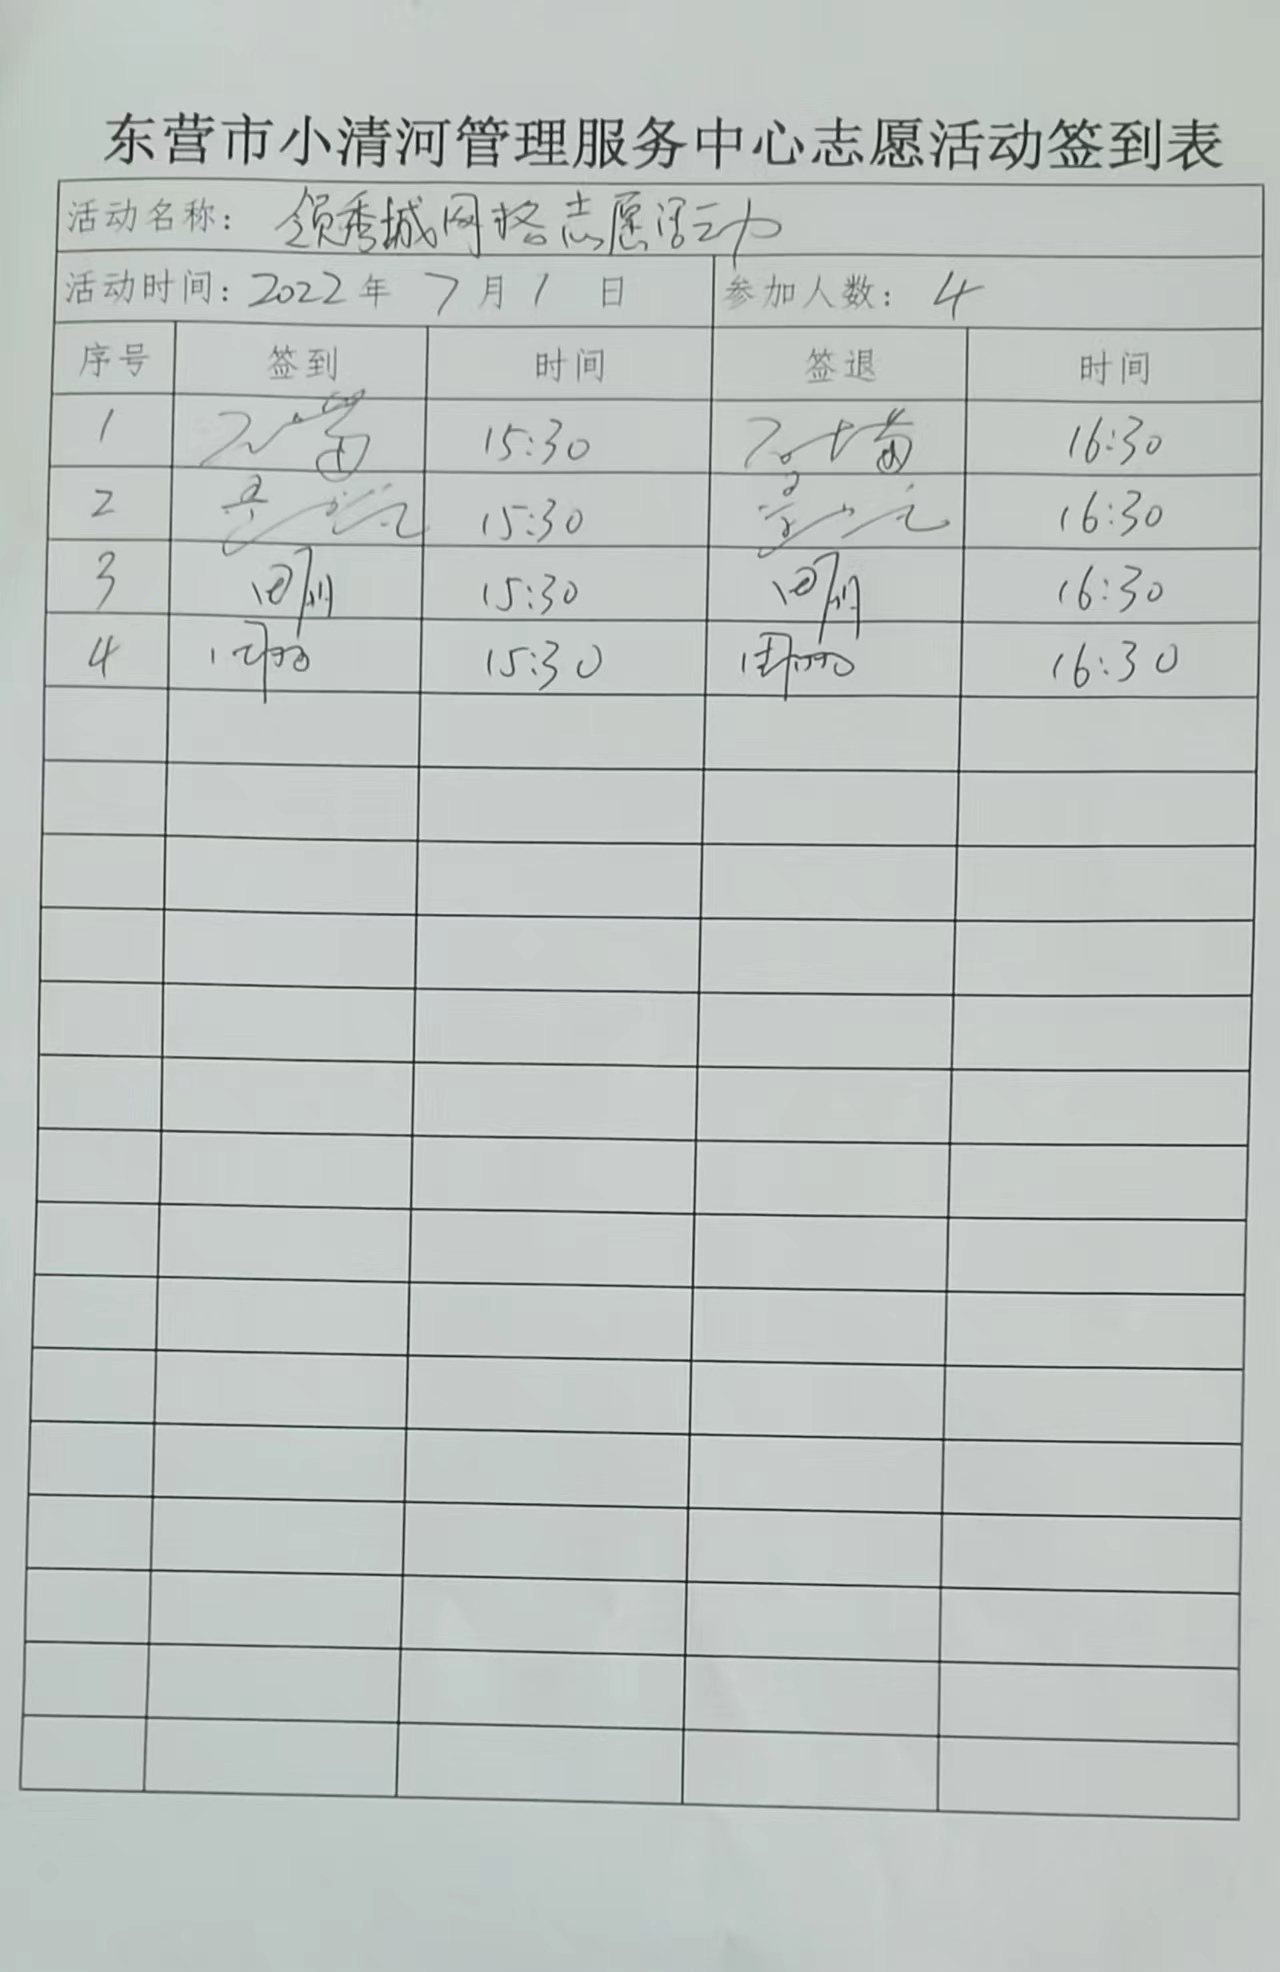 东营市小清河管理服务中心志愿活动签到表
活动名称：领秀城网格志愿活动
活动时间：2022年7月1日 参加人数：4
序号 签到 时间 签退 时间
1 15:30 16:30
2 15:30 16:30
3 15:30 16:30
4 15:30 16:30